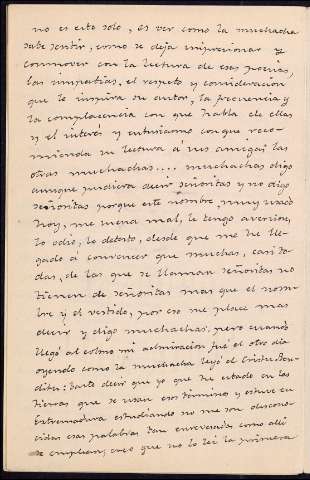 no es esto solo, es ver como la muchacha
sabe sentir, como se deja impresionar y
conmover con la lectura de esas poesías,
las simpatías, el respeto y consideración
que le inspira su autor, la frecuencia y
la complacencia con que habla de ellas
y el interés y entusiasmo con que reco-
mienda su lectura á sus amigas las
otras muchachas.... muchachas digo
aunque pudiera decir señoritas y no digo
señoritas porque este nombre, muy usado
hoy, me suena mal, le tengo aversion,
lo odio, lo detesto, desde que me he lle-
gado á convencer que muchas, casi to-
das, de las que se llaman señoritas no
tienen de señoritas mas que el nom-
bre y el vestido, por eso me place mas
decir y digo muchachas; pero cuando
llegó al colmo mi admiracion fué el otro dia
oyendo como la muchacha leyó el Cristu Ben-
ditu: basta decir que yo que he estado en las
tierras que se usan esos términos y estuve en
Extremadura estudiando no me son descono-
cidas esas palabras tan enrevesadas como allí
se emplean, creo que no lo leí la primera